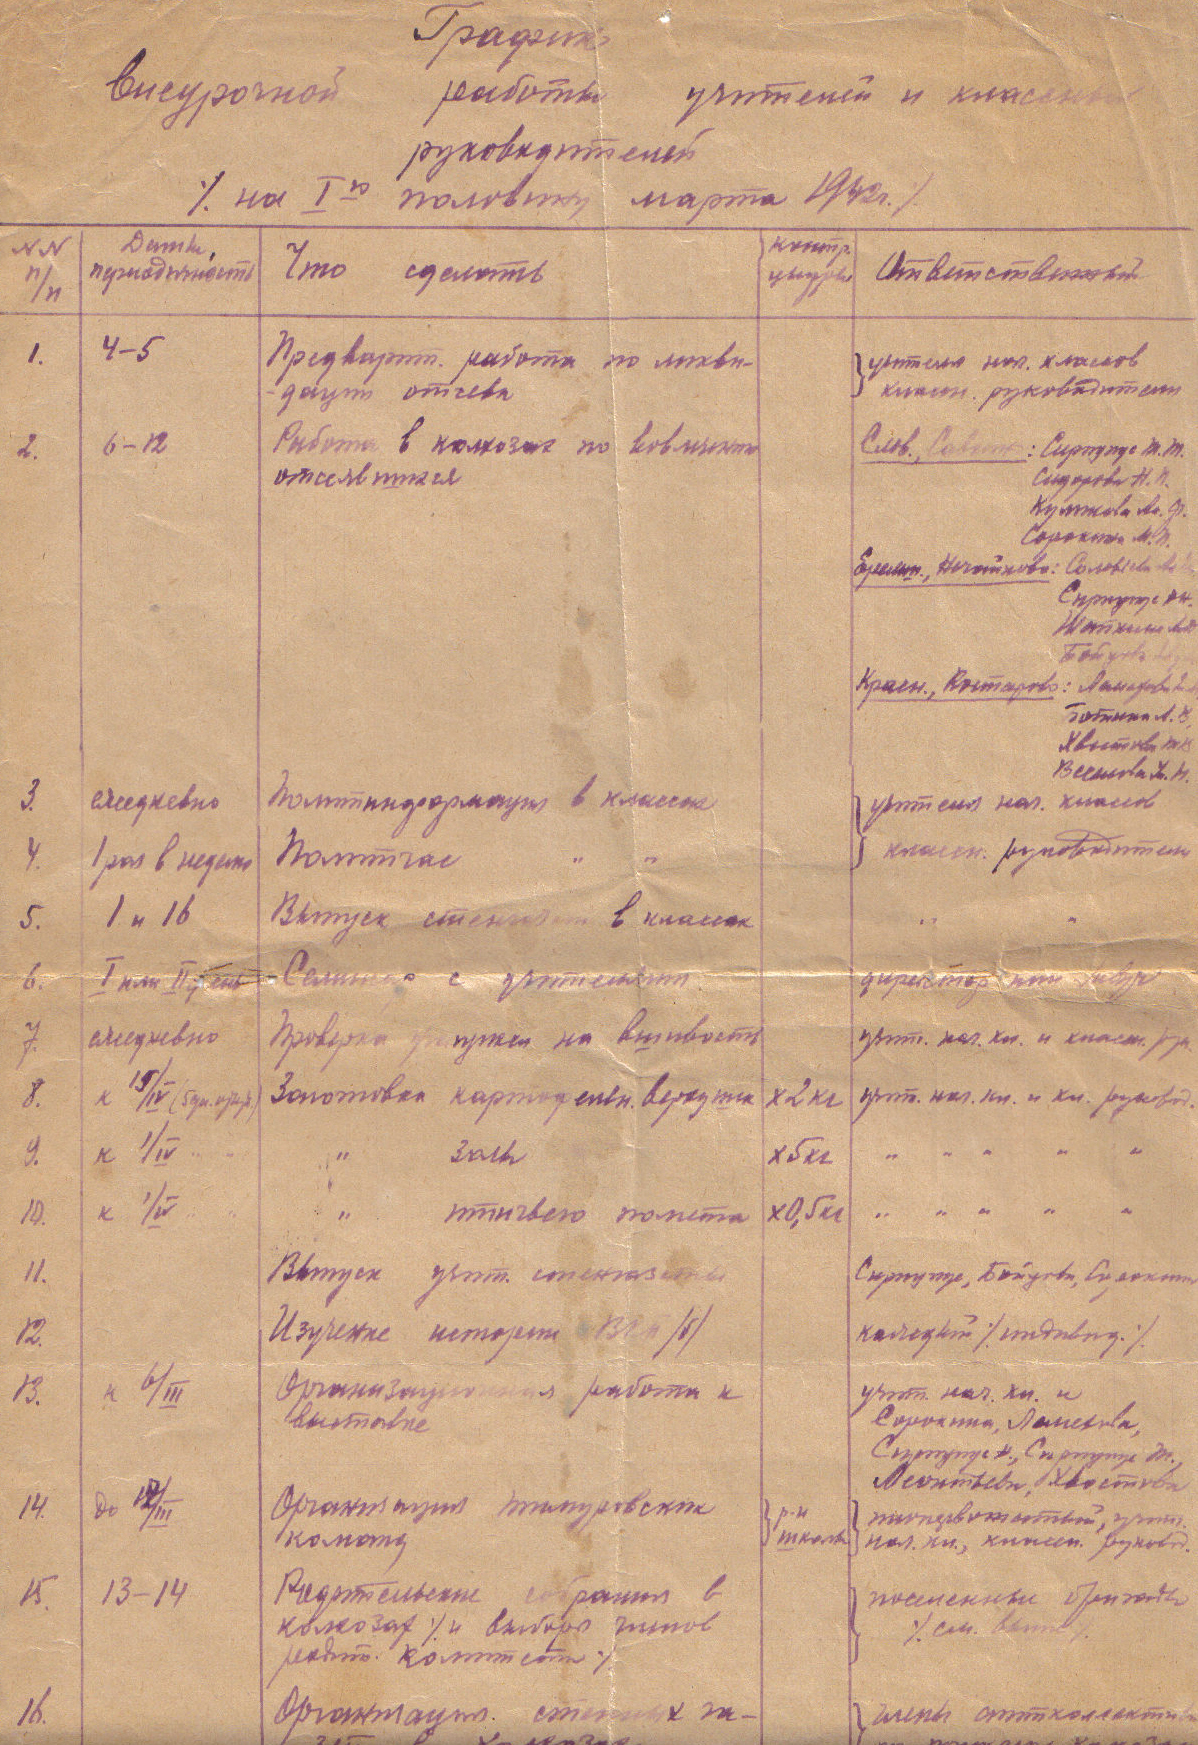 График
внеурочной работы учителей и классных
руководителей
/. на I-ю половину марта 1942г. /.
NN п/п
Даты, периодичность
Что сделать
контр. цифры
Ответственный
1.
4-5
Предварит. работа по ликви-
-дации отсева
учителя нач. классов
классн. руководители
2.
6-12
Работа в колхозах по вовлечению
отсеявшихся
Слов., : Сириус М.М.
Сидорова Н.П.
Куликова
Сорокина М.П.
: Соловьева
Сириус
Красн., Костарово:
Хвостова
3.
ежедневно
Политинформация в классах
учителя нач. классов
4.
1 раз в неделю
Политчас " "
классн. руководители
5.
1 и 16
Выпуск стенгазет в классах
" "
6.
I или II день
Семинар с учителями
директор или завуч
7.
ежедневно
Проверка на вшивость
учит. нач. кл. и классн. рук.
8.
к 15/IV
Заготовка картофельн. верхушек
х2кг
учит. нач. кл. и кл. руковод.
9.
к 1/IV " "
" золы
х5кг
" " " " "
10.
к 1/IV " "
" птичьего помета
х0,5кг
" " " " "
11.
Выпуск учит. стенгазеты
Сириус, Бойцова, Сорокина
12.
Изучение истории ВКП/б/
каждый /. индивид. /.
13.
к 6/III
Организационная работа к
выставке
учит. нач. кл. и
Сорокина,
Сириус Н., Сириус М.,
Леонтьева, Хвостова
14.
до 12/III
Организация тимуровских
команд
р-н
школы
пионервожатый, учит.
нач. кл., классн. руковод.
15.
13-14
Родительские собрания в
колхозах /. и выборы членов
родит. комитета /.
поселенные бригады
/. см. выше /.
16.
Организация стенных га-
зет в колхозах
члены